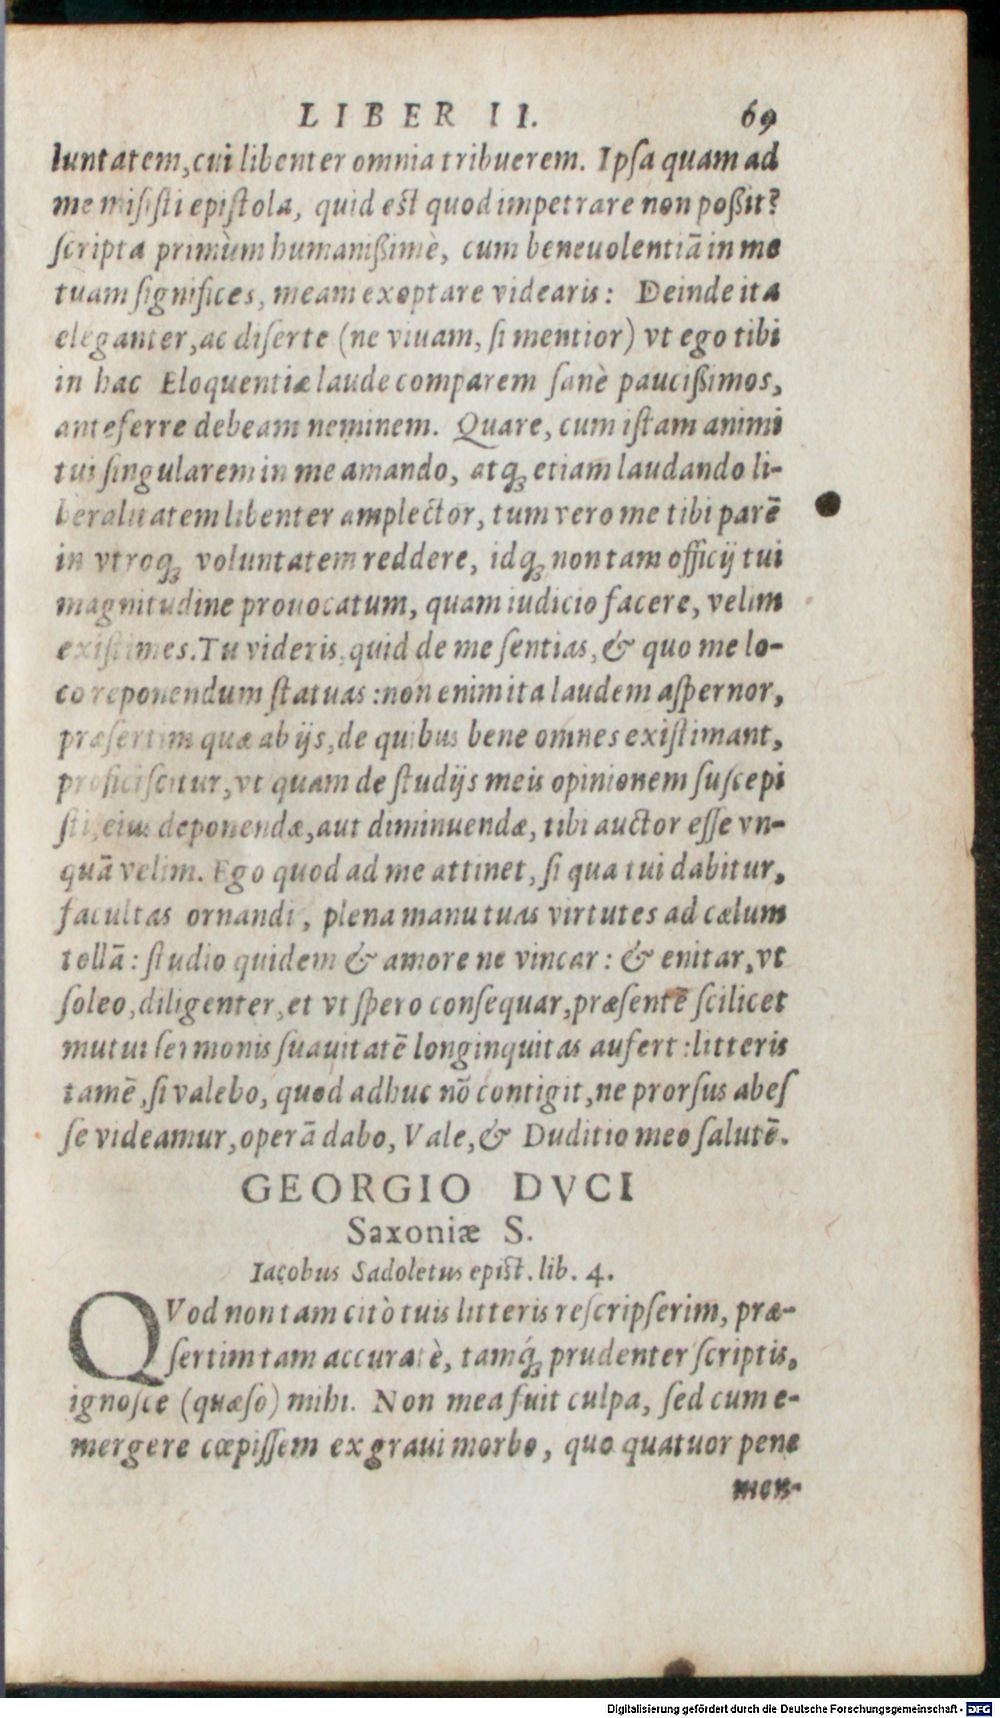 LIBER II. 69
luntatem, cui libenter omnia tribuerem. Ipſa quam ad
me miſiſti epiſtola, quid eſt quod impetrare non poßit?
ſcripta primùm humanißimè, cum beneuolentiā in me
tuam ſignifices, meam exoptare videaris: Deinde ita
eleganter, ac diſerte (ne viuam, ſi mentior) vt ego tibi
in hac Eloquentiæ laude comparem ſanè paucißimos,
anteferre debeam neminem. Quare, cum iſtam animi
tui ſingularem in me amando, atq; etiam laudando li-
beralitatem libenter amplector, tum vero me tibi parē
in vtroq; voluntatem reddere, idq; non tam officij tui
magnitudine prouocatum, quam iudicio facere, velim
exiſtimes. Tu videris, quid de me ſentias, & quo me lo-
co reponendum ſtatuas: non enim ita laudem aſpernor,
præſertim quæ ab ijs, de quibus bene omnes exiſtimant,
proficiſcitur, vt quam de ſtudijs meis opinionem ſuſcepi
ſti, eius deponendæ, aut diminuendæ, tibi auctor eſſe vn-
quā velim. Ego quod ad me attinet, ſi qua tui dabitur,
facultas ornandi, plena manu tuas virtutes ad cælum
tollā: ſtudio quidem & amore ne vincar: & enitar, vt
ſoleo, diligenter, et vt ſpero conſequar, præſentē ſcilicet
mutui ſermonis ſuauitatē longinquitas aufert: litteris
tamē, ſi valebo, quod adhuc nō contigit, ne prorſus abeſ
ſe videamur, operā dabo, Vale, & Duditio meo ſalutē.
GEORGIO DVCI
Saxoniæ S.
Iacobus Sadoletus epiſt. lib. 4.
QVod non tam citò tuis litteris reſcripſerim, præ-
ſertim tam accuratè, tamq́; prudenter ſcriptis,
ignoſce (quæſo) mihi. Non mea fuit culpa, ſed cum e-
mergere cœpiſſem ex graui morbo, quo quatuor pene
men-
Digitalisierung gefördert durch die Deutsche Forschungsgemeinschaft - DFG